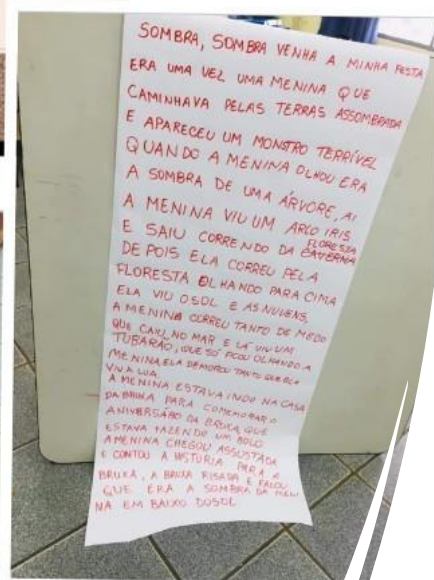 SOMBRA, SOMBRA VENHA A MINHA FESTA
ERA UMA VEZ UMA MENINA QUE
CAMINHAVA PELAS TERRAS ASSOMBRADA
E APARECEU UM MONSTRO TERRÍVEL
QUANDO A MENINA OLHOU ERA
A SOMBRA DE UMA ÁRVORE, AI
A MENINA VIU UM ARCO IRIS
E SAIU CORRENDO DA FLORESTA CAVERNA
DEPOIS ELA CORREU PELA
FLORESTA OLHANDO PARA CIMA
ELA VIU O SOL E AS NUVENS,
A MENINA CORREU TANTO DE MEDO
QUE CAIU NO MAR E LÁ VIU UM
TUBARÃO, QUE SÓ FICOU OLHANDO A
MENINA ELA DEMOROU TANTO QUE
VIU A LUA.
A MENINA ESTAVA INDO NA CASA
DA BRUXA PARA COMEMORAR O
ANIVERSÁRIO DA BRUXA, QUE
ESTAVA FAZENDO UM BOLO
A MENINA CHEGOU ASSUSTADA
E CONTOU A HISTÓRIA PARA A
BRUXA, A BRUXA RISADA E FALOU
QUE ERA A SOMBRA DA MENI
NA EM BAIXO DO SOL